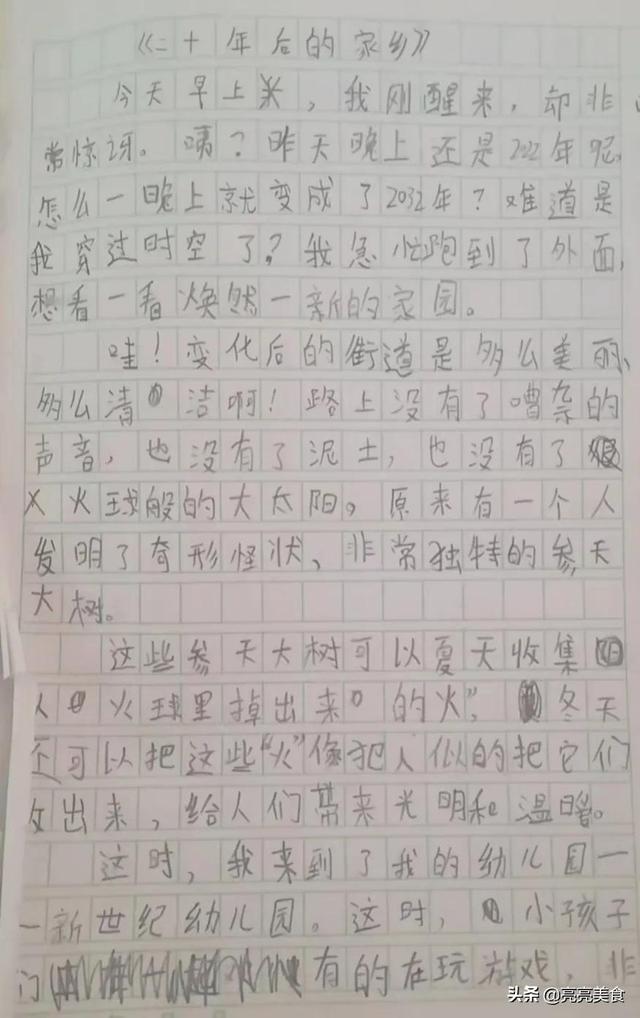 《二十年后的家乡》
今天早上米，我刚醒来，却非
常惊讶。咦？昨天晚上还是2022年呢，
怎么一晚上就变成了2032年？难道是
我穿过时空了？我急忙跑到了外面，
想看一看焕然一新的家园。
哇！变化后的街道是多么美丽、
多么清洁啊！路上没有了嘈杂的
声音，也没有了泥土，也没有了
火球般的大太阳。原来有一个人
发明了奇形怪状、非常独特的参天
大树。
这些参天大树可以夏天收集
从火球里掉出来的“火”，冬天
还可以把这些“火”像犯人似的把它们
放出来，给人们带来光明和温暖。
这时，我来到了我的幼儿园一
一新世纪幼儿园。这时，小孩子
们有的在玩游戏，非
头条@亮亮美食